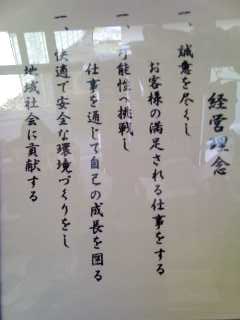 経営理念
一、誠意を尽くし
お客様の満足される仕事をする
一、可能性へ挑戦し
仕事を通じて自己の成長を図る
一、快適で安全な環境づくりをし
地域社会に貢献する